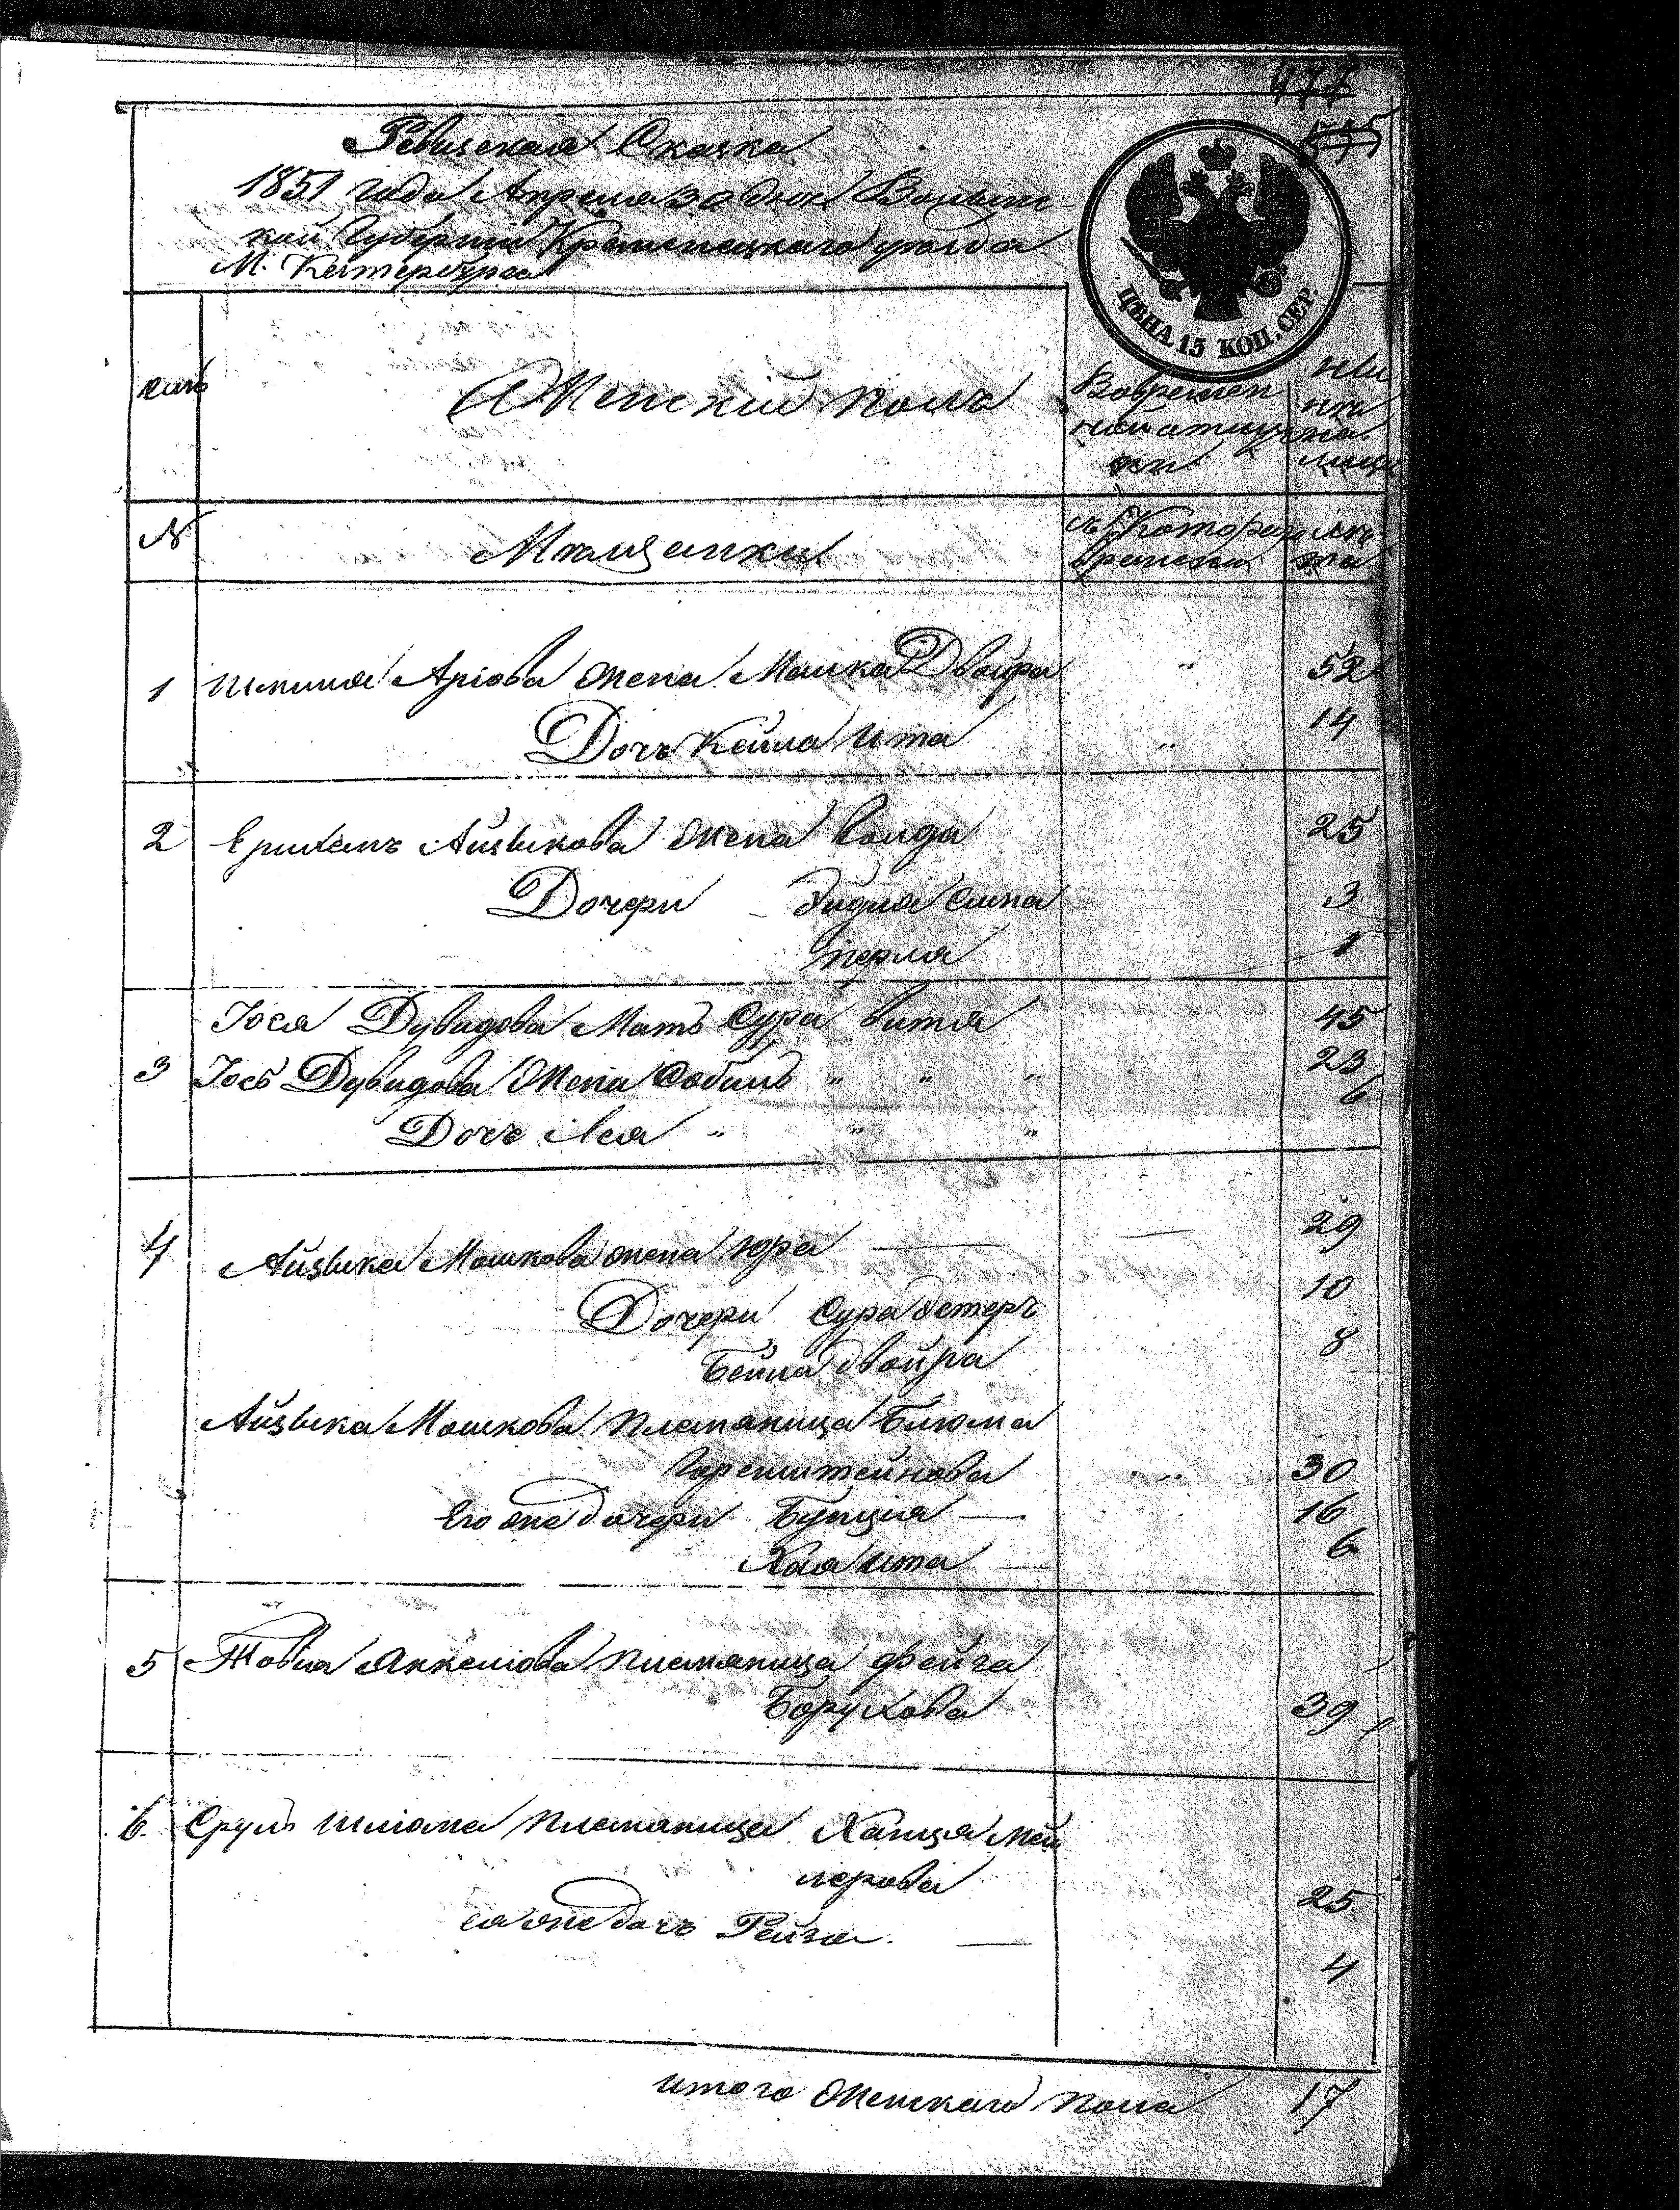 Ревизская Сказка
1851 года Апреля 30 дня Волынс-
кой Губернии Кременецкаго уезда
М. Катербурга
ЦѢНА 15 КОП. СЕР.
Женский полъ
Вовремен
ной отлуч
ки
№
Мѣщанки
съ Котораго
времени
лѣ
та
1 Шмиля Аріова жена Машка Двойра " 52
Дочь Кейла Ита " 14
2 Айзикова жена 25
Дочери Эидля Сима 3
перля 1
Іося Дувидова Мать Сура витя 45
3 Іось Дувидова Жена Собиль " " " 23
Дочь Лея " " " 6
4 Айзика Мошкова жена юра — — 29
Дочери Сура Эстеръ 10
Бейла двойра 8
Айзика Мошкова племяница Блюма
Горенштейнова " 30
Ею же дочери Бунция — 16
Хая ита 6
5 Товия Янкелiова племяница фейга
Борухова 39
6. Сруль Шліома племяница Ханця Мей
лерова 25
ея же дочь Рейзя. — 4
итого Женскаго пола 17